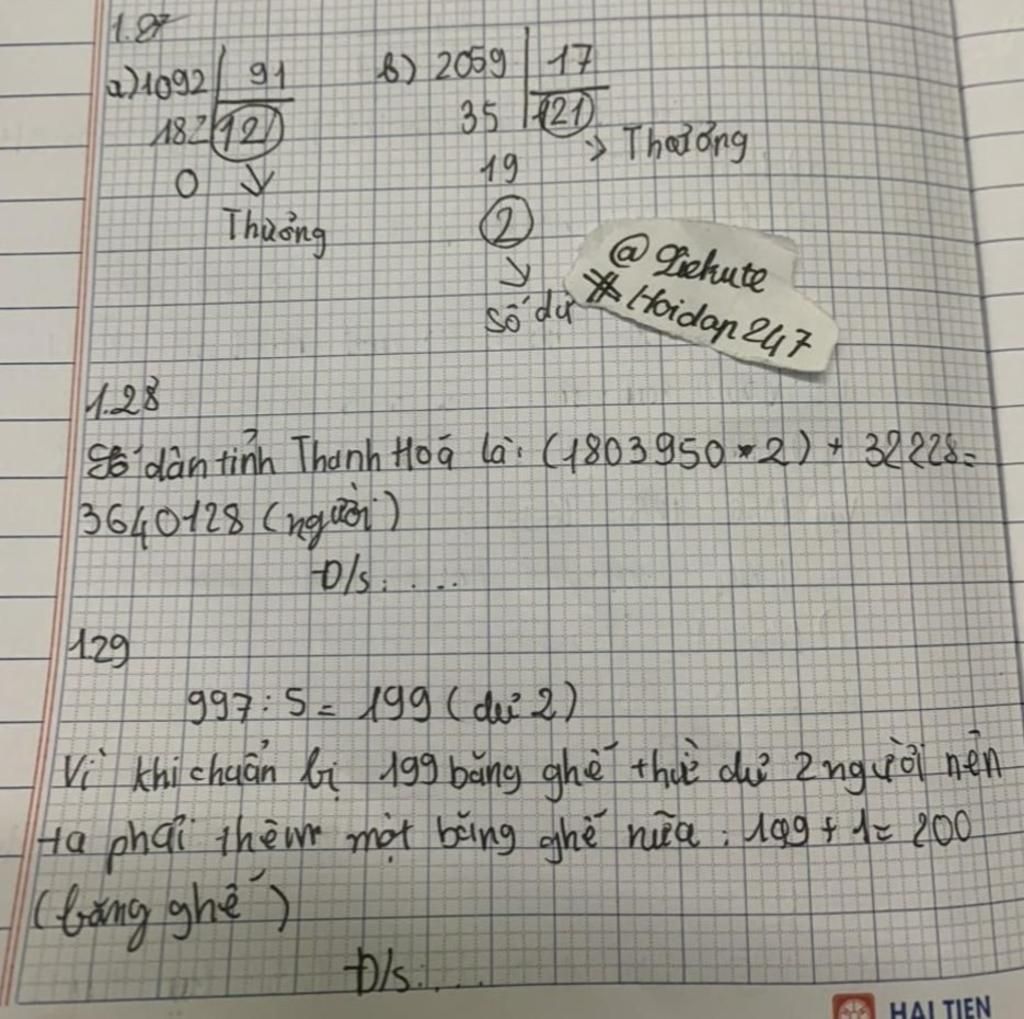 1.27
a) 1092 | 91
182 | 12
0
Thưởng
b) 2059 | 17
35 | 121
19
2
Thưởng
số dư
@Liekute
#Hoidap247
1.28
Số dân tỉnh Thanh Hoá là: (1803950 * 2) + 32228=
3640128 (người)
Đ/s: ....
129
997 : 5 = 199 (dư 2)
Vì khi chuẩn bị 199 băng ghế thì dư 2 người nên
ta phải thêm một băng ghế nữa: 199 + 1 = 200
(băng ghế)
Đ/s:....
HẢI TIẾN